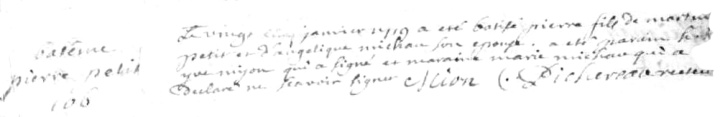 bateme
pierre petit
166
Le vingt cinq janvier 1719 a eté batisé pierre fils de martin
petit et d'angelique michau son epouse. a eté parain
yve mijon qui a signé et maraine marie michau qui a
declaré ne scavoir signer Mion C. Pichereau recteur